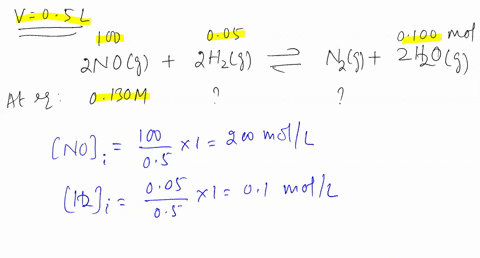 V=0.5L
100 0.05 0.100 mol
2NO(g) + 2H₂(g) ⇌ N₂(g) + 2H₂O(g)
At eq: 0.130M ? ?
[NO]ᵢ = 100/0.5 ×1 = 200 mol/L
[H2]ᵢ = 0.05/0.5 ×1 = 0.1 mol/L